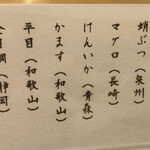 蛸ぶつ（泉州）
マグロ（長崎）
けんいか（青森）
かます（和歌山）
平目（和歌山）
金目鯛（静岡）